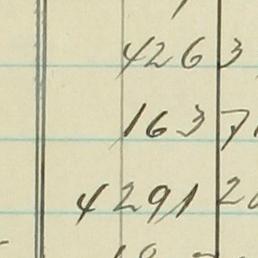 426 3
163 7
4291 20